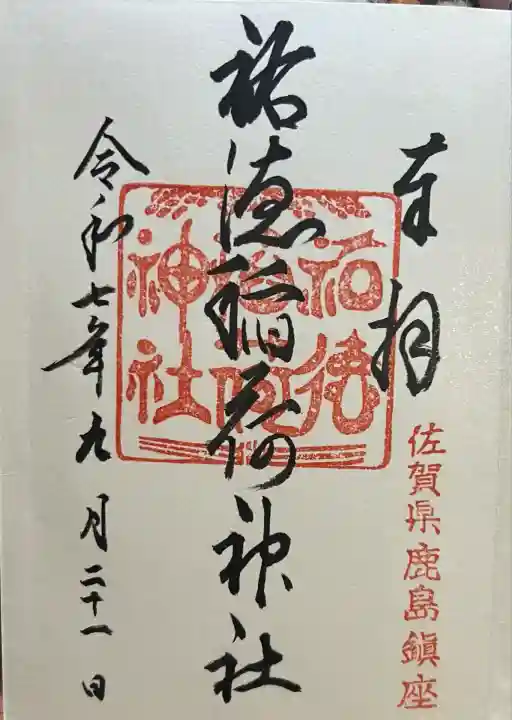 奉拝
佐賀県鹿島鎮座
祐徳稲荷神社
祐徳
稲荷
神社
令和七年九月二十一日